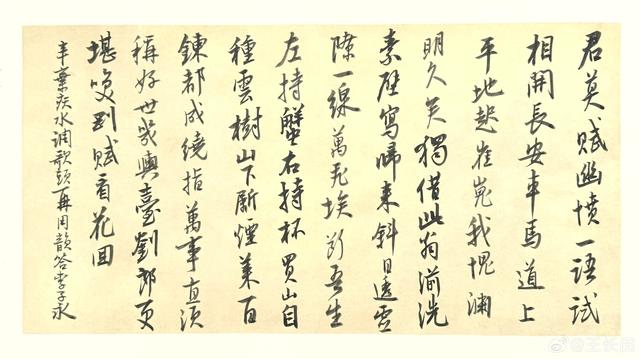 君莫賦幽憤一語試
相開長安車馬道上
平地起崔嵬我愧淵
明久矣獨借此翁湔洗
素壁寫歸來斜日透虛
隙一線萬飛埃斷吾生
左持蟹右持杯買山自
種雲樹山下劚煙萊百
鍊都成繞指萬事直須
稱好世幾輿臺劉郎更
堪笑剛賦看花回
辛棄疾水调歌頭再用韻答李子永